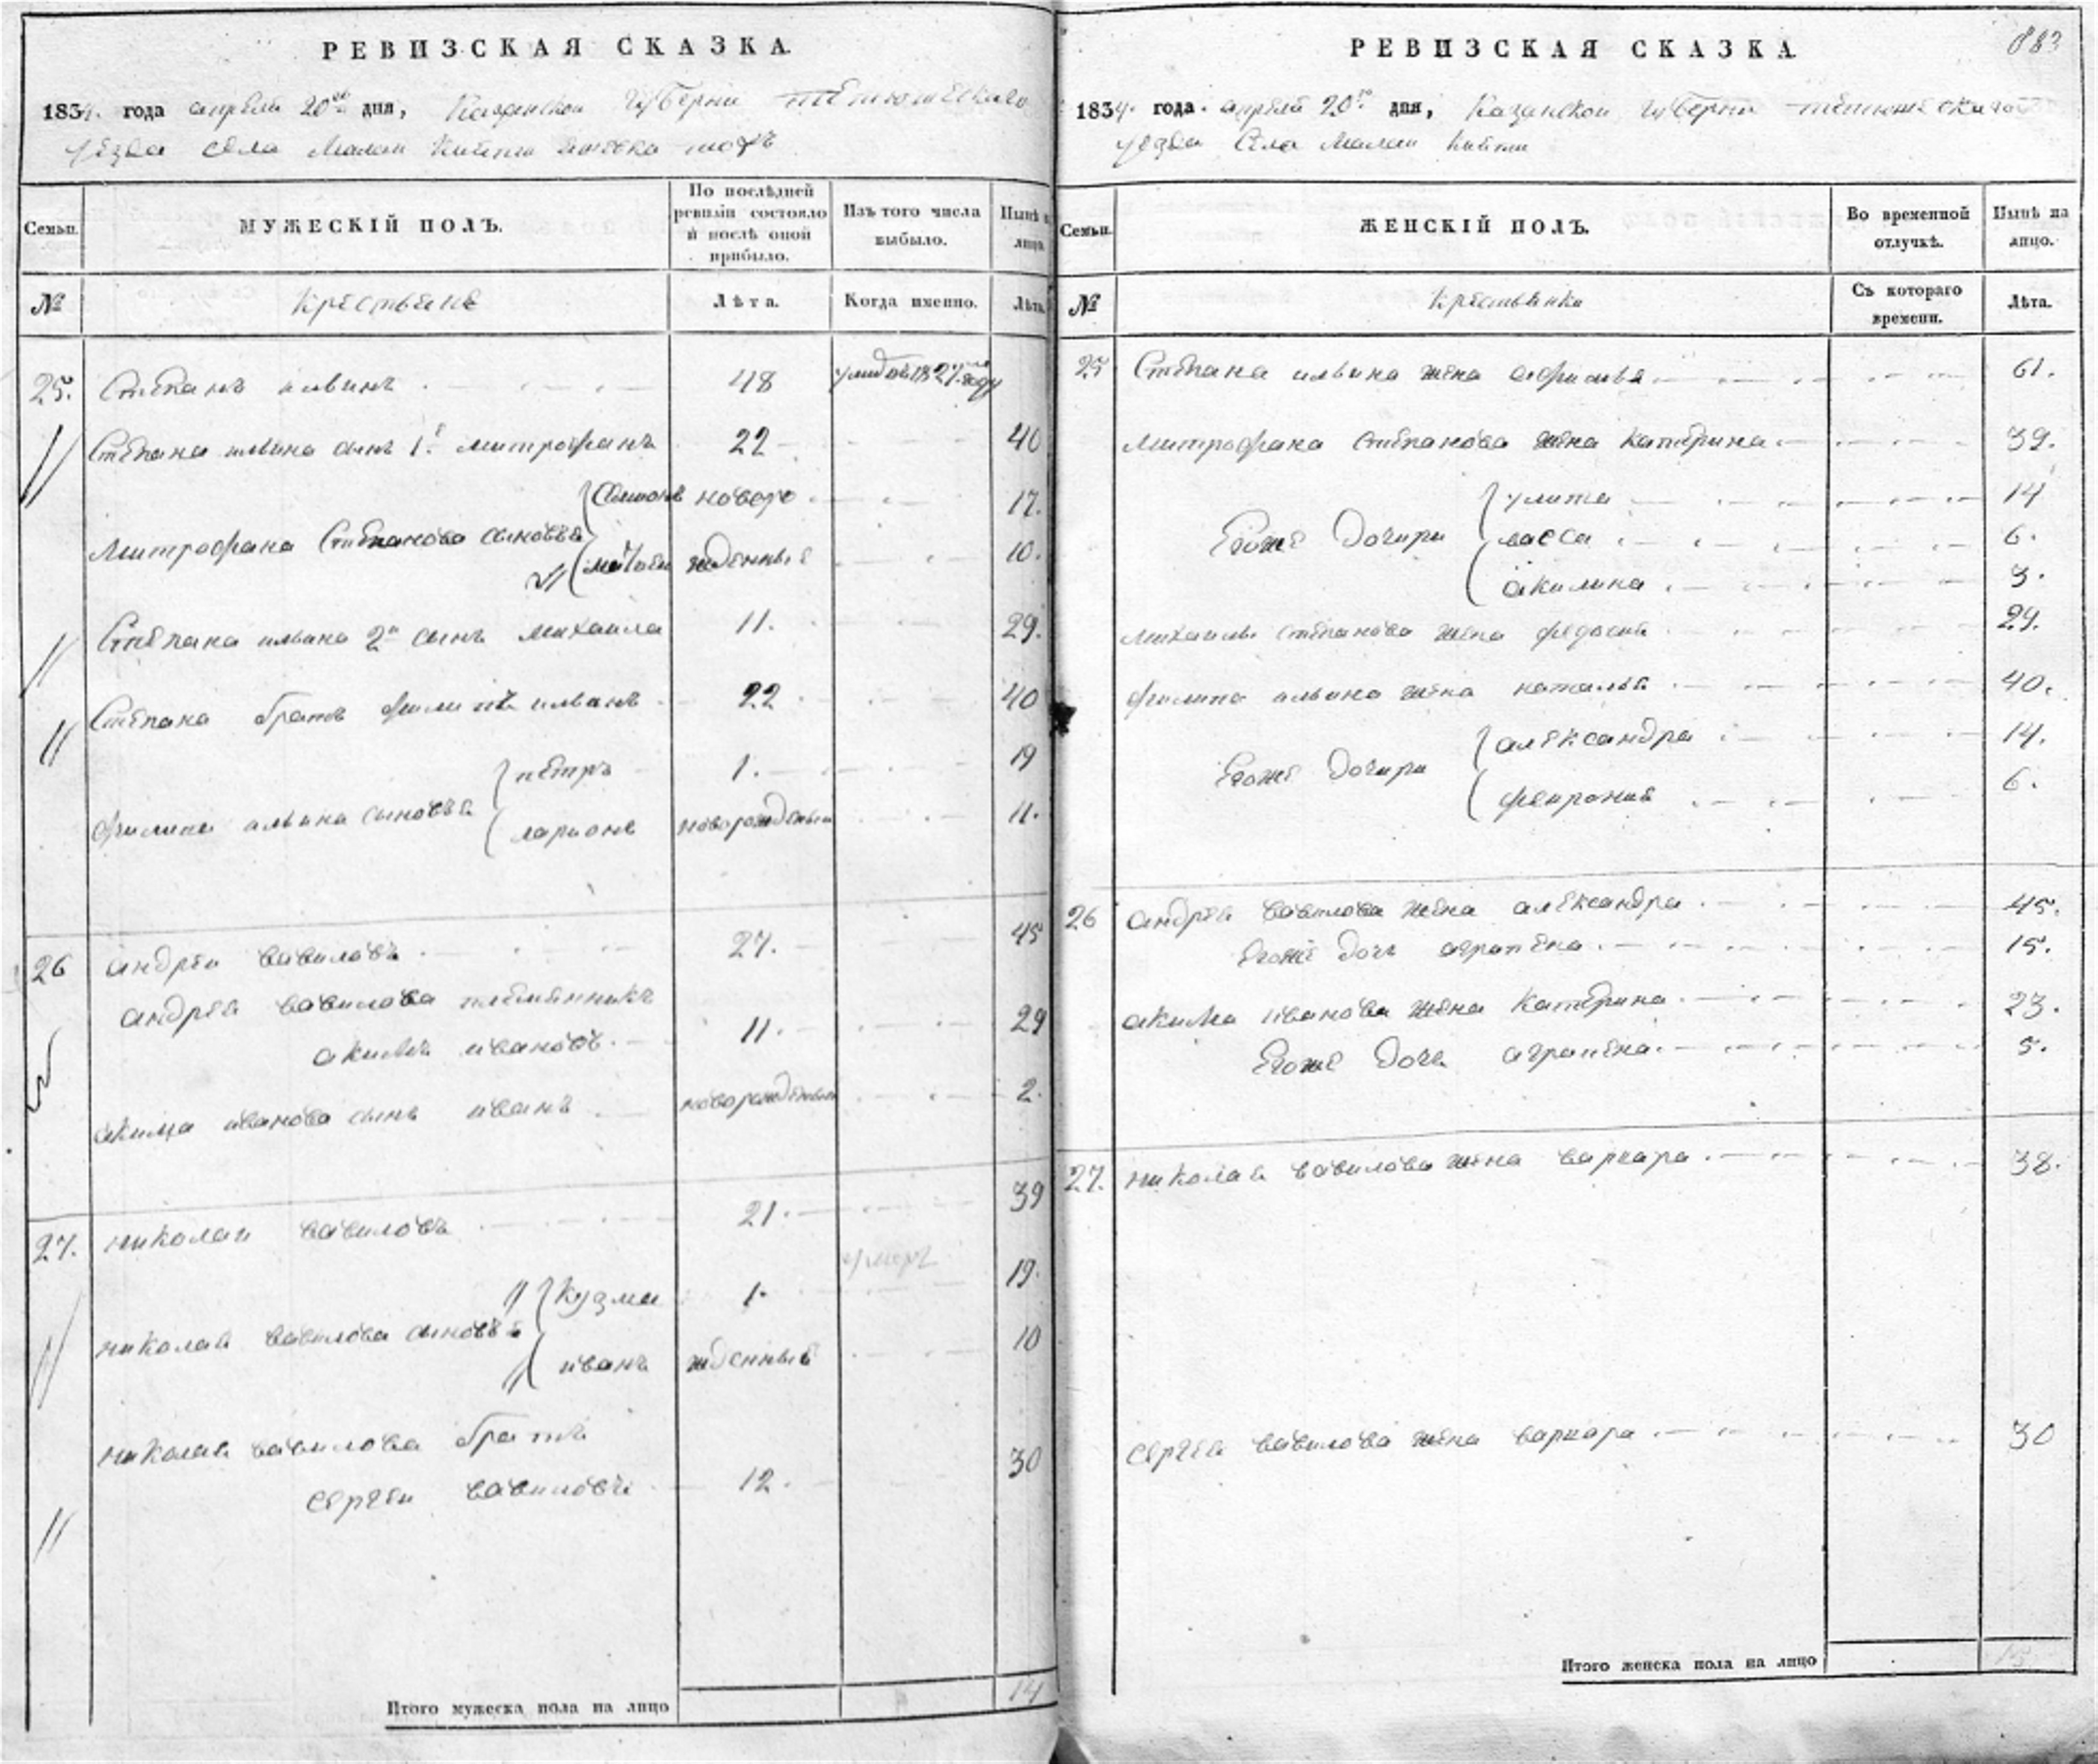 РЕВИЗСКАЯ СКАЗКА.
1834. года апреля 20го дня, Казанской губернии тетюшескаго
уезда села Малой
Семьи.
МУЖЕСКІЙ ПОЛЪ.
По послѣдней ревизіи состояло и послѣ оной прибыло.
Изъ того числа выбыло.
Нынѣ на лицо.
№
крестьяне
Лѣта.
Когда именно.
Лѣта.
25. Степанъ ильинъ 48 умъ въ 1827 году
Степана ильина сынъ 1й митрофанъ 22 40
Митрофана Степанова сыновья
Семионъ новоро 17.
жденные 10.
Степана ильина 2й сынъ михаила 11. 29.
Степана братъ филипъ ильинъ 22 40
филипа ильина сыновья
петръ 1. 19
ларионъ новорожденыи 11.
26 андреи вавиловъ 27. 45
андрея вавилова племянникъ
акимъ ивановъ 11. 29
акима иванова сынъ иванъ новорожденыи 2.
27. николаи вавиловъ 21. 39
умеръ
николая вавилова сыновья
Кузма 1. 19.
иванъ жденныи 10
николая вавилова братъ
сергеи вавиловъ 12. 30
Итого мужеска пола на лицо 14
РЕВИЗСКАЯ СКАЗКА
883
1834. года. апреля 20го дня, Казанской губернии тетюшескаго
уезда Села Малой
Семьи.
ЖЕНСКІЙ ПОЛЪ.
Во временной отлучкѣ.
Нынѣ на лицо.
№
крестьянки
Съ котораго времени.
Лѣта.
25 Степана ильина жена афимья 61.
митрофана степанова жена катерина 39.
Егоже дочири
улита 14
васса 6.
акилина 3.
михаилы степанова жена федосия 29.
филипа ильина жена наталья 40.
Егоже дочири
александра 14.
6.
26 андрея вавилова жена александра 45.
Егоже дочь аграпена 15.
акима иванова жена катерина 23.
Егоже дочь аграпена 5.
27. николая вавилова жена варвара 38.
сергея вавилова жена варвара 30
Итого женска пола на лицо